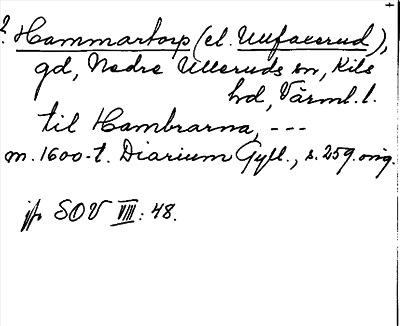 ? Hammartorp (el. Ulfaxerud),
gd, Nedre Ulleruds sn, Kils
hd, Värml. l.
til Hambrarna, ---
m. 1600-t. Diarium Gyll., s. 259. orig.
jfr SOV VIII: 48.